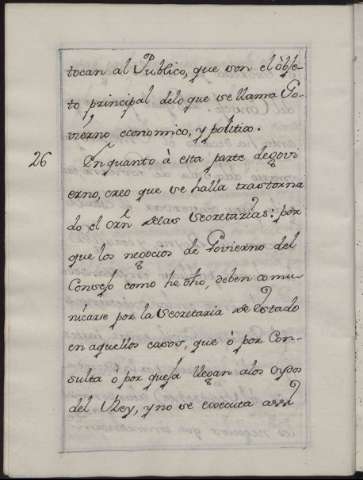 tocan al Publico, que son el òbje-
to principal delo que se llama Go-
vierno economico, y politico.
26 En quanto à esta parte degovi
erno, creo que se halla trastorna
do el orñ. delas Secretarías; por
que los negocios de Govierno del
Consejo como he dho, deben comu-
nicarse por la Secretaria de Estado
en aquellos casos, que ò por Con-
sulta ò por queja llegan alos Oydos
del Rey, y no se executa assi